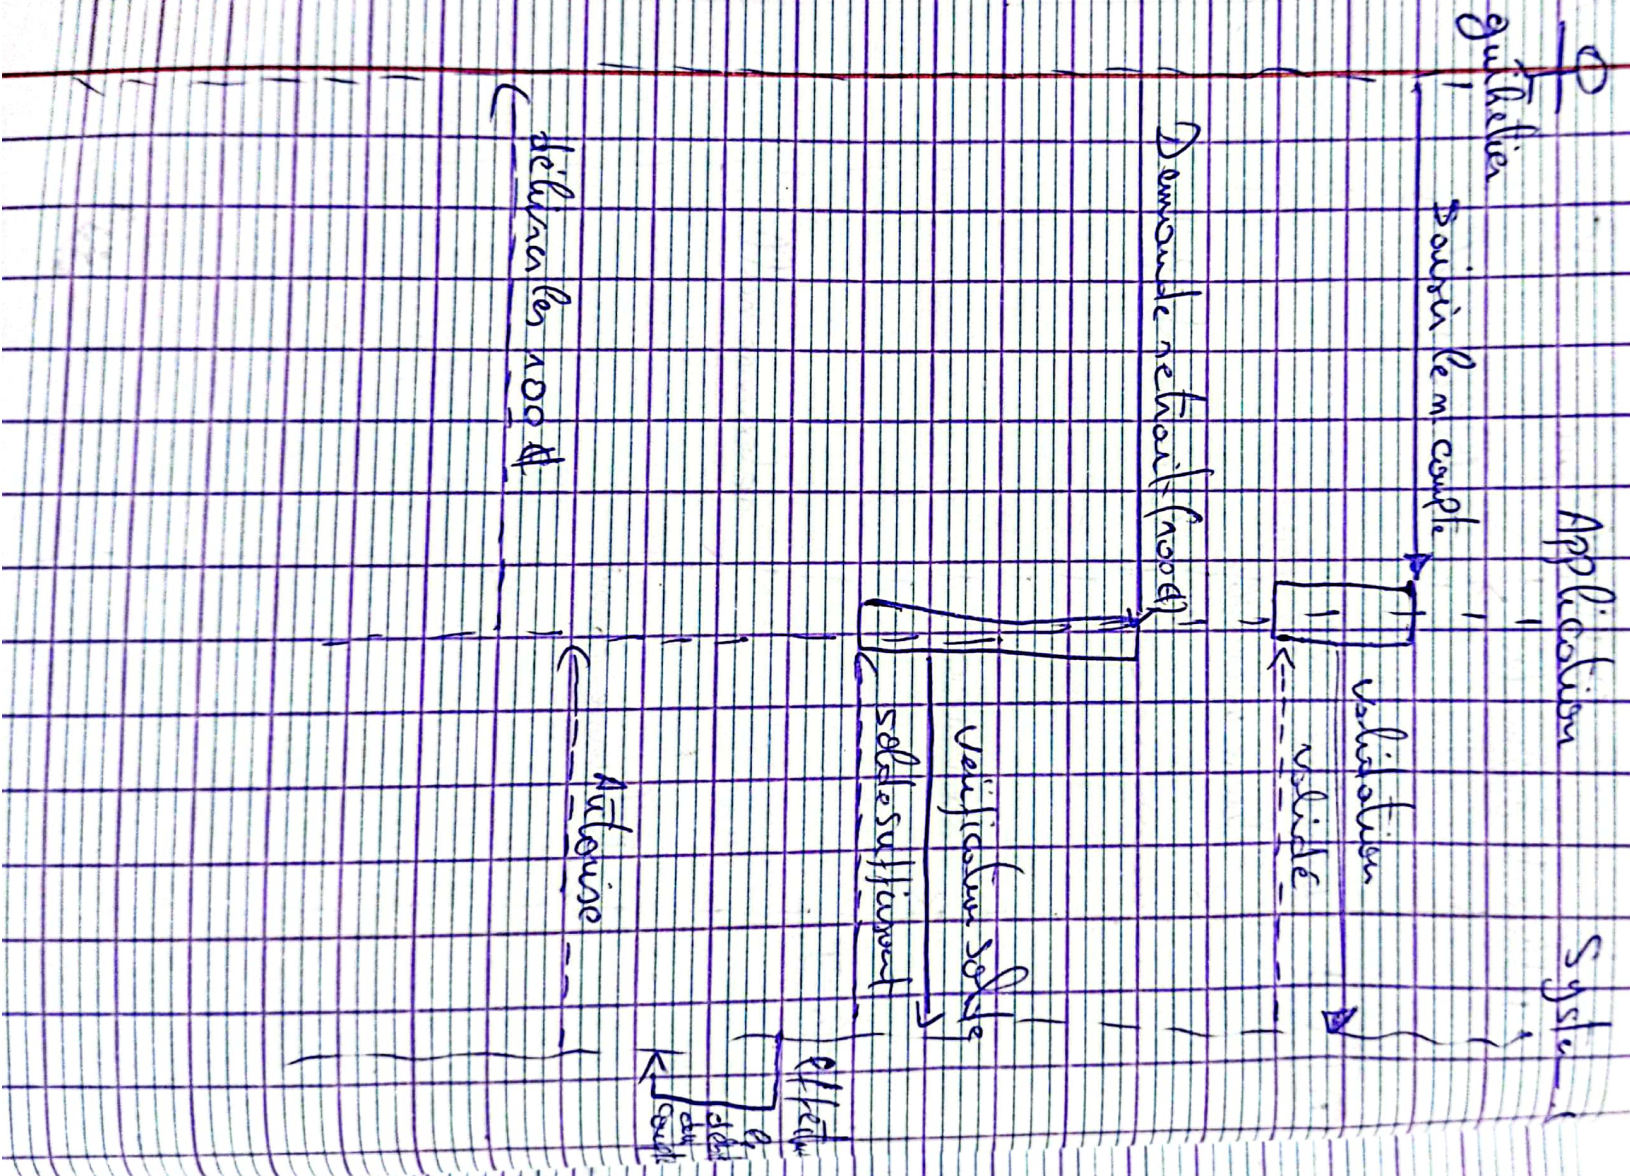 guihetier
Application
Syste
saisir le n compte
validation
validé
Demande retrait (100€)
verification solde
solde suffisant
effectu
le
débit
du
compte
Autorise
délivrer les 100€